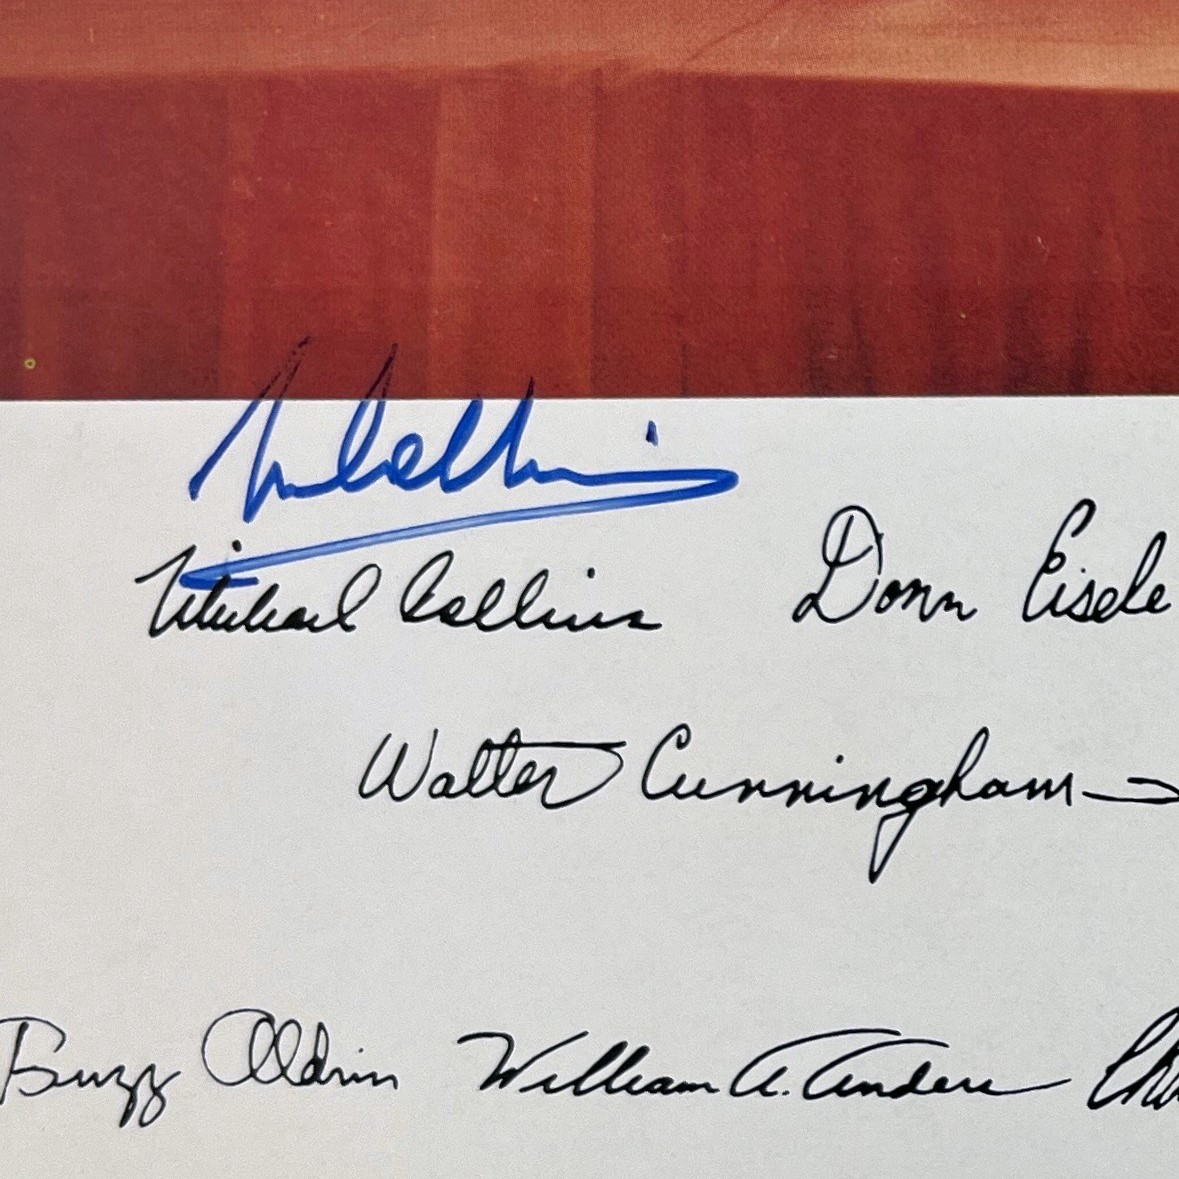 M Collins
Michael Collins Donn Eisele
Walter Cunningham
Buzz Aldrin William A. Anders